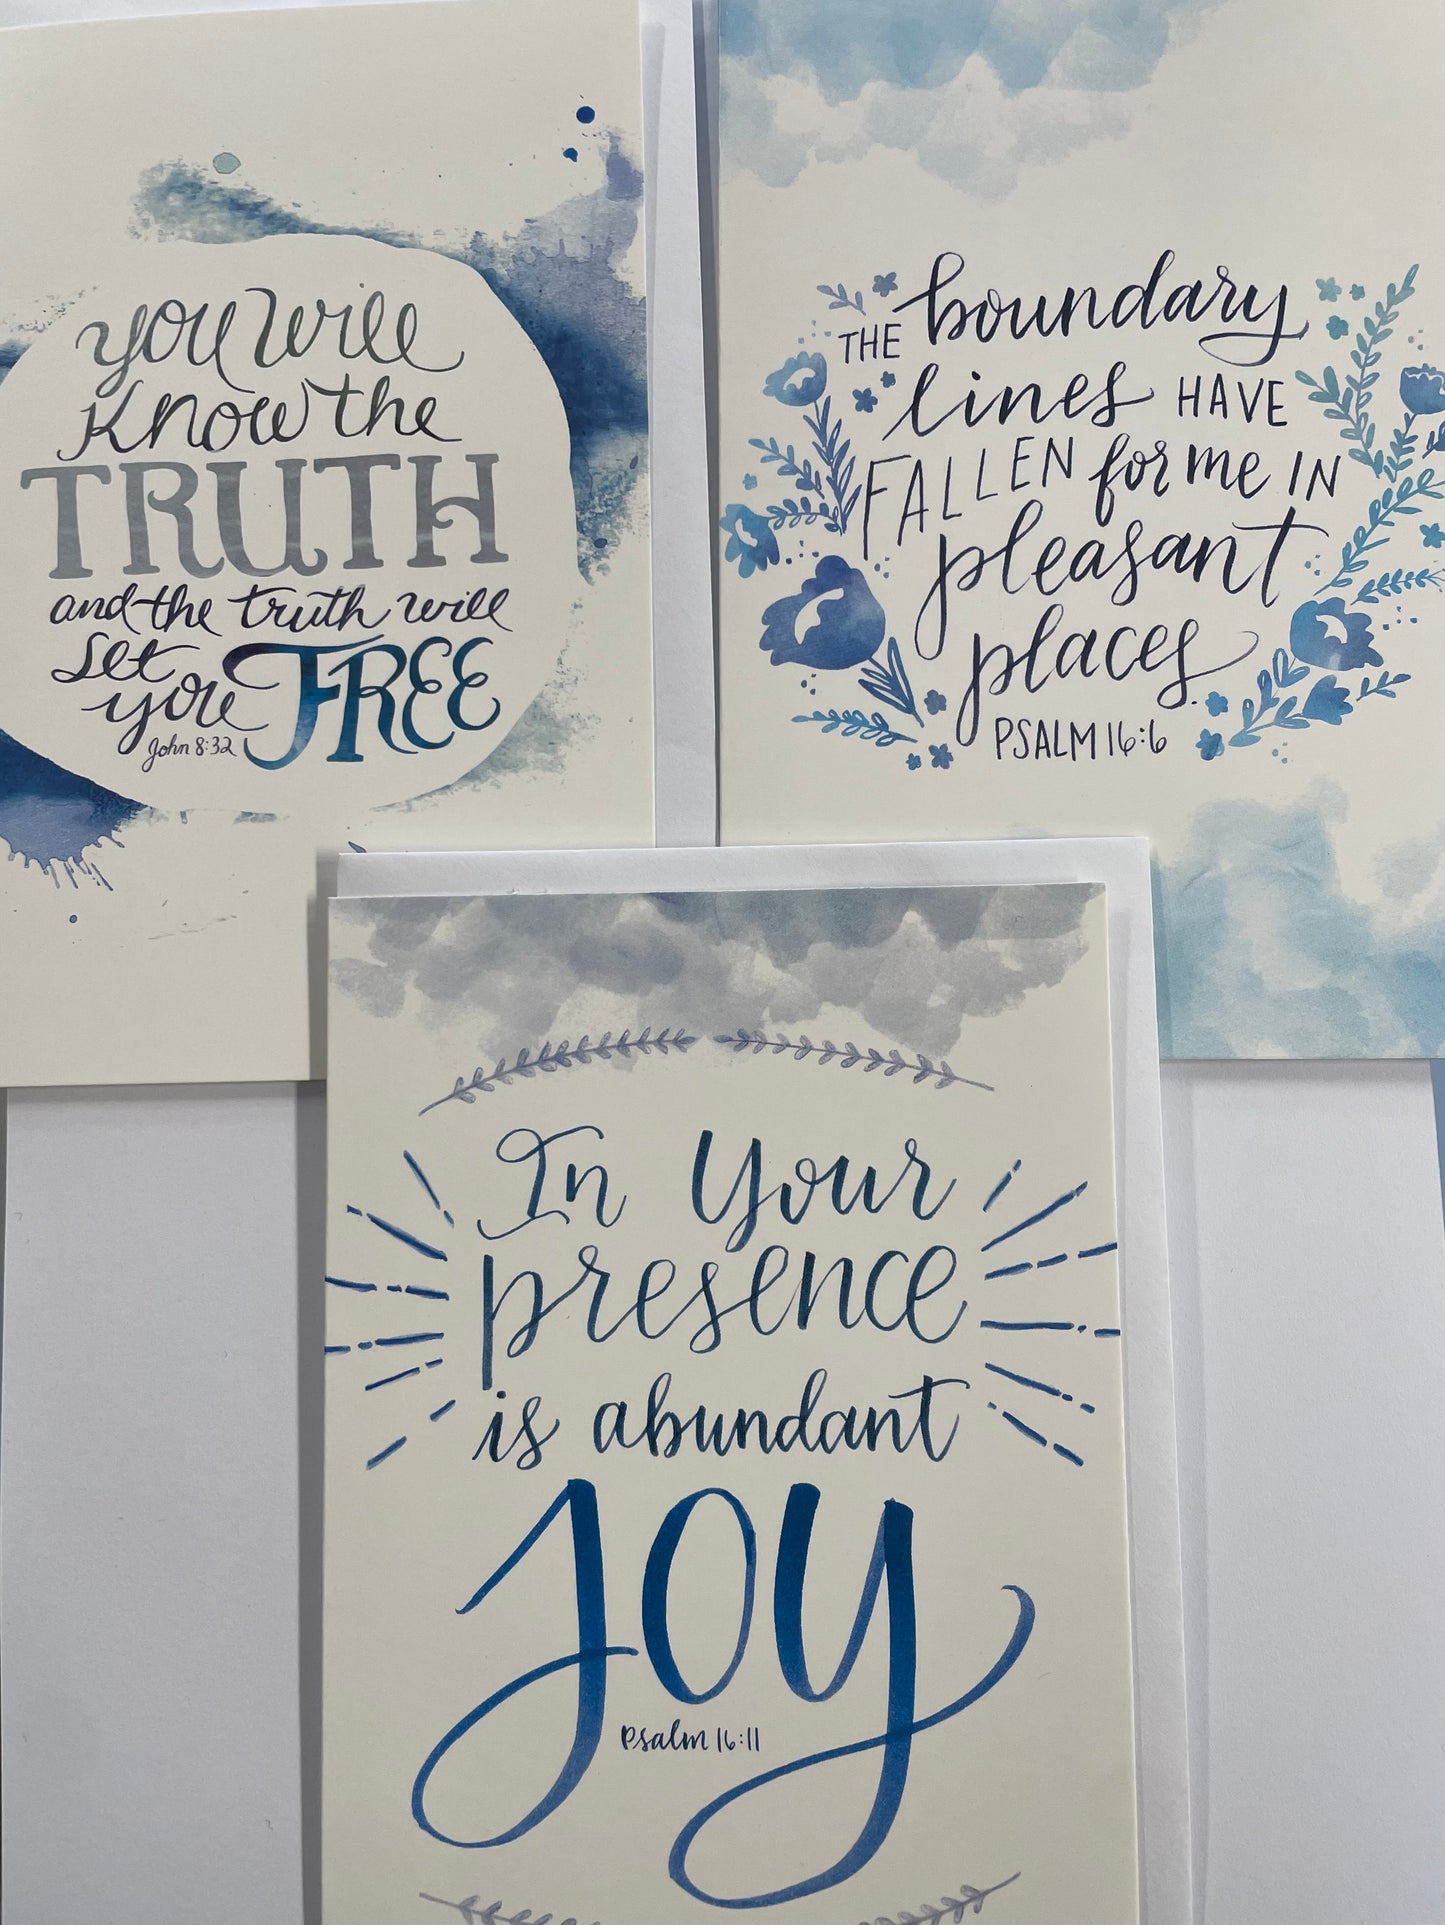 you will
know the
TRUTH
and the truth will
set
you FREE
John 8:32
THE boundary
lines HAVE
FALLEN for me IN
pleasant
places
PSALM 16:6
In Your
presence
is abundant
JOY
Psalm 16:11